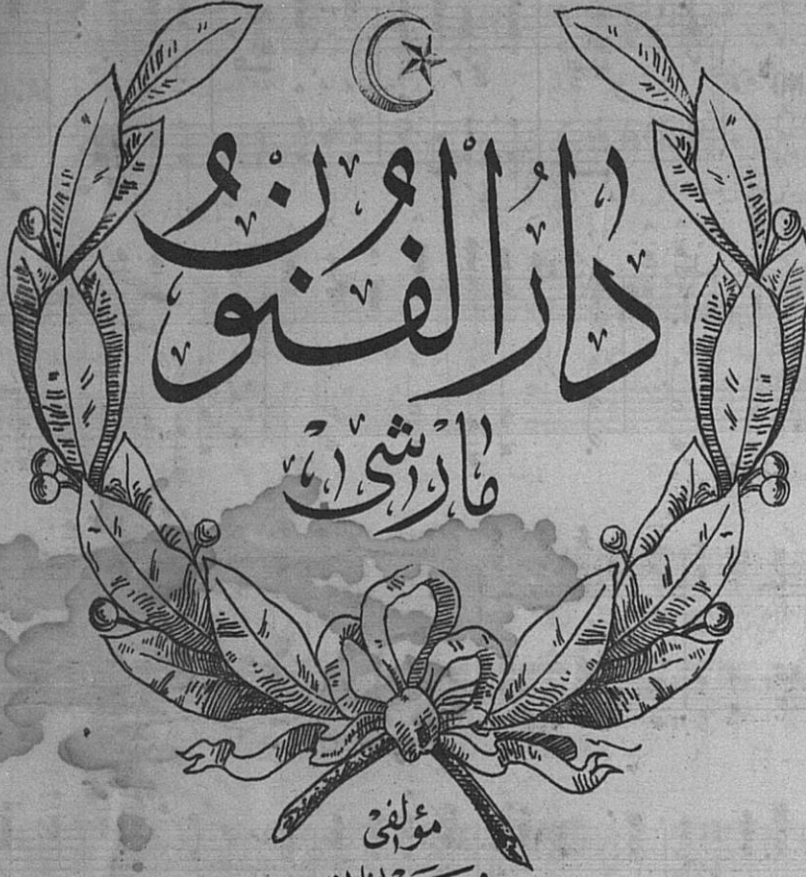 دار الفنون
مارشى
مؤلفى